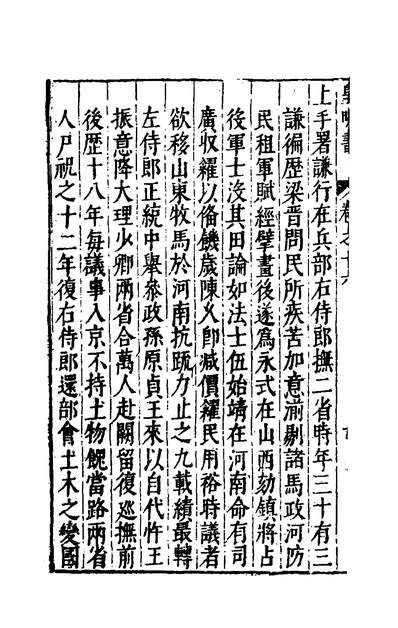 上手署謙行在兵部右侍郎撫二省時年三十有三
謙徧歷梁晉問民所疾苦加意湔剔諸馬政河防
民租軍賦經擘畫後遂為永式在山西劾鎮將占
後軍士没其田論如法士伍始靖在河南命有司
廣収糴以俻饑歲陳乆卽減價糴民用裕時議者
欲移山東牧馬於河南抗䟽力止之九載績最轉
左侍郎正統中舉參政孫原貞王來以自代忤王
振意降大理少卿兩省合萬人赴闕留復巡撫前
後歷十八年每議事入京不持土物餽當路兩省
人戸祝之十二年復右侍郎還部會土木之變國